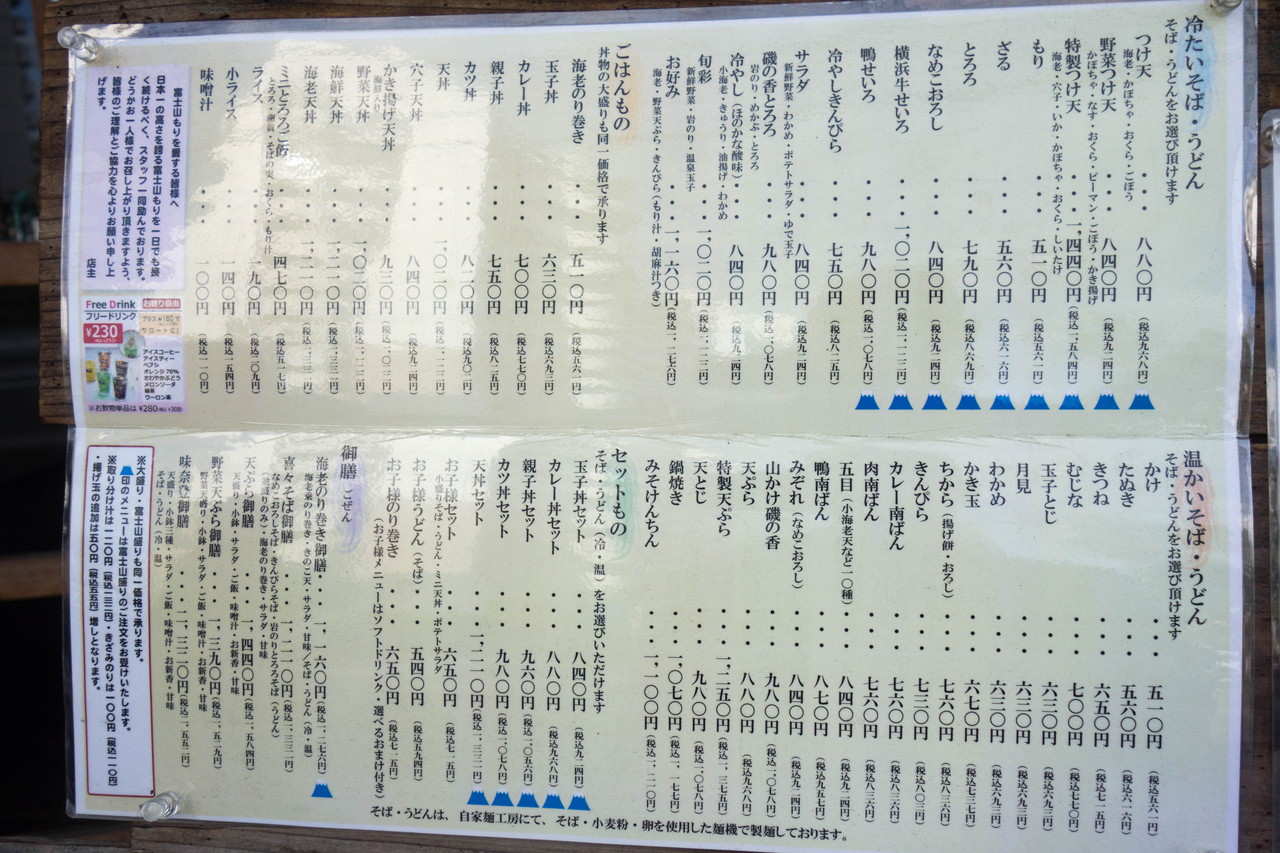 冷たいそば・うどん
そば・うどんをお選び頂けます
つけ天 ・・・ 八八〇円 (税込九六八円)
海老・かぼちゃ・おくら・ごぼう
野菜つけ天 ・・・ 八四〇円 (税込九二四円)
かぼちゃ・なす・おくら・ピーマン・ごぼう・かき揚げ
特製つけ天 ・・・ 一,四四〇円 (税込一,五八四円)
海老・穴子・いか・かぼちゃ・おくら・しいたけ
もり ・・・ 五一〇円 (税込五六一円)
ざる ・・・ 五六〇円 (税込六一六円)
とろろ ・・・ 七九〇円 (税込八六九円)
なめこおろし ・・・ 八四〇円 (税込九二四円)
横浜牛せいろ ・・・ 一,〇二〇円 (税込一,一二二円)
鴨せいろ ・・・ 九八〇円 (税込一,〇七八円)
冷やしきんぴら ・・・ 七五〇円 (税込八二五円)
サラダ ・・・ 八四〇円 (税込九二四円)
新鮮野菜・わかめ・ポテトサラダ・ゆで玉子
磯の香とろろ ・・・ 九八〇円 (税込一,〇七八円)
岩のり・めかぶ・とろろ
冷やし(ほのかな酸味) ・・・ 八四〇円 (税込九二四円)
小海老・きゅうり・油揚げ・わかめ
旬彩 ・・・ 一,〇二〇円 (税込一,一二二円)
新鮮野菜・岩のり・温泉玉子
お好み ・・・ 一,一六〇円 (税込一,二七六円)
海老・野菜天ぷら・きんぴら(もり汁・胡麻汁つき)
ごはんもの
丼物の大盛りも同一価格で承ります
海老のり巻き ・・・ 五一〇円 (税込五六一円)
玉子丼 ・・・ 六三〇円 (税込六九三円)
カレー丼 ・・・ 七〇〇円 (税込七七〇円)
親子丼 ・・・ 七五〇円 (税込八二五円)
カツ丼 ・・・ 八二〇円 (税込九〇二円)
天丼 ・・・ 一,〇二〇円 (税込一,一二二円)
穴子天丼 ・・・ 八四〇円 (税込九二四円)
かき揚げ天丼 ・・・ 九三〇円 (税込一,〇二三円)
海鮮入り
野菜天丼 ・・・ 一,〇二〇円 (税込一,一二二円)
海鮮天丼 ・・・ 一,二一〇円 (税込一,三三一円)
海老天丼 ・・・ 一,二一〇円 (税込一,三三一円)
ミニとろろご飯 ・・・ 四七〇円 (税込五一七円)
とろろ・卵黄・そばの実・おくら・もり汁
ライス ・・・ 一九〇円 (税込二〇九円)
小ライス ・・・ 一四〇円 (税込一五四円)
味噌汁 ・・・ 一〇〇円 (税込一一〇円)
富士山もりを愛する皆様へ
日本一の高さを誇る富士山もりを一日でも長
く続けるべく、スタッフ一同励んでおります。
どうかお一人様でお召し上がり頂きますよう、
皆様のご理解とご協力を心よりお願い申し上
げます。
店主
Free Drink お替り自由
フリードリンク
プラス¥180で
¥230
アイスコーヒー
アイスティー
ペプシ
オレンジ70%
さわやかぶどう
メロンソーダ
緑茶
ウーロン茶
※お飲物単品は¥280(税込¥308)
温かいそば・うどん
そば・うどんをお選び頂けます
かけ ・・・ 五一〇円 (税込五六一円)
たぬき ・・・ 五六〇円 (税込六一六円)
きつね ・・・ 六五〇円 (税込七一五円)
むじな ・・・ 七〇〇円 (税込七七〇円)
玉子とじ ・・・ 六三〇円 (税込六九三円)
月見 ・・・ 六三〇円 (税込六九三円)
わかめ ・・・ 六三〇円 (税込六九三円)
かき玉 ・・・ 六七〇円 (税込七三七円)
ちから(揚げ餅・おろし) ・・・ 七六〇円 (税込八三六円)
きんぴら ・・・ 七三〇円 (税込八〇三円)
カレー南ばん ・・・ 七六〇円 (税込八三六円)
肉南ばん ・・・ 七六〇円 (税込八三六円)
五目(小海老天など一〇種) ・・・ 八四〇円 (税込九二四円)
鴨南ばん ・・・ 八七〇円 (税込九五七円)
みぞれ(なめこおろし) ・・・ 八四〇円 (税込九二四円)
山かけ磯の香 ・・・ 九八〇円 (税込一,〇七八円)
天ぷら ・・・ 八八〇円 (税込九六八円)
特製天ぷら ・・・ 一,二五〇円 (税込一,三七五円)
天とじ ・・・ 九八〇円 (税込一,〇七八円)
鍋焼き ・・・ 一,〇七〇円 (税込一,一七七円)
みそけんちん ・・・ 一,一〇〇円 (税込一,二一〇円)
セットもの
そば・うどん(冷・温)をお選びいただけます
玉子丼セット ・・・ 八四〇円 (税込九二四円)
カレー丼セット ・・・ 八八〇円 (税込九六八円)
親子丼セット ・・・ 九六〇円 (税込一,〇五六円)
カツ丼セット ・・・ 九八〇円 (税込一,〇七八円)
天丼セット ・・・ 一,二一〇円 (税込一,三三一円)
お子様セット ・・・ 六五〇円 (税込七一五円)
小盛りそば・うどん・ミニ天丼・ポテトサラダ
お子様うどん(そば) ・・・ 五四〇円 (税込五九四円)
お子様のり巻き ・・・ 六五〇円 (税込七一五円)
(お子様メニューはソフトドリンク・選べるおまけ付き)
御膳 ごぜん
海老のり巻き御膳 ・・・ 一,一六〇円 (税込一,二七六円)
海老楽のり巻き・きのこ天・サラダ・甘味/そば・うどん(冷・温)
喜々そば御膳 ・・・ 一,二一〇円 (税込一,三三一円)
なめこおろしそば・きんぴらそば・岩のりとろろそば(うどん)
(盛切りのみ)・海老のり巻き・サラダ・甘味
天ぷら御膳 ・・・ 一,四四〇円 (税込一,五八四円)
天盛り・小鉢・サラダ・ご飯・味噌汁・お新香・甘味
野菜天ぷら御膳 ・・・ 一,三九〇円 (税込一,五二九円)
野菜天盛り・小鉢・サラダ・ご飯・味噌汁・お新香・甘味
味奈登御膳 ・・・ 二,三二〇円 (税込二,五五二円)
天盛り・小鉢二種・サラダ・ご飯・味噌汁・お新香・甘味
そば・うどん(冷・温)
※大盛り・富士山盛りも同一価格で承ります。
印のメニューは富士山盛りのご注文をお受けいたします。
※取り分け汁は一二〇円(税込一三二円)・きざみのりは一〇〇円(税込一一〇円)
・揚げ玉の追加は五〇円(税込五五円)増しとなります。
そば・うどんは、自家麺工房にて、そば・小麦粉・卵を使用した麺機で製麺しております。